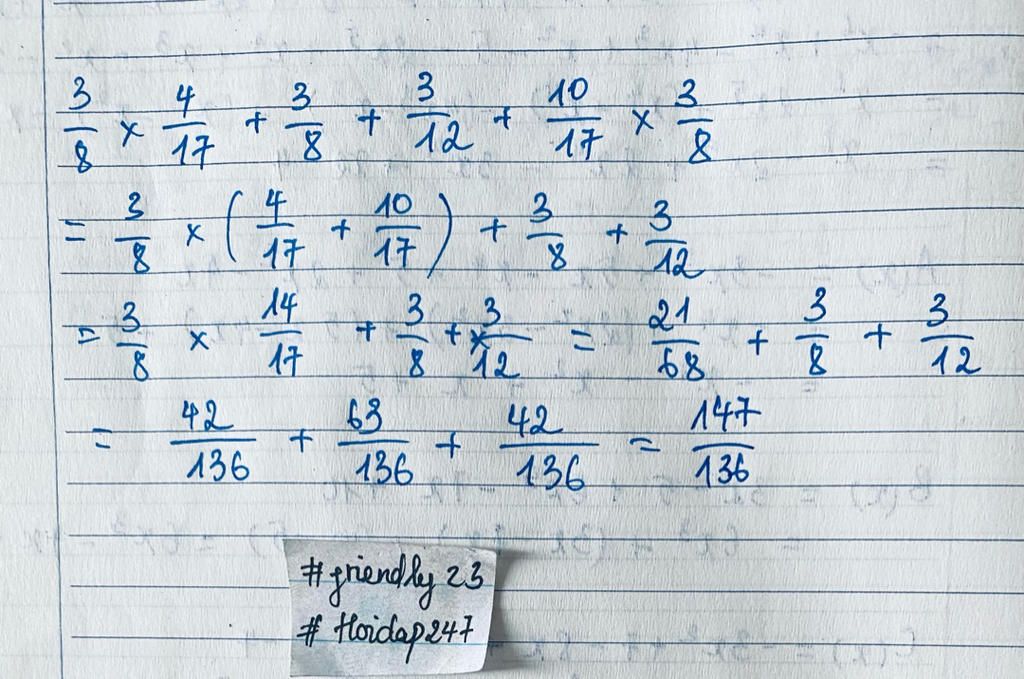 3/8 × 4/17 + 3/8 + 3/12 + 10/17 × 3/8
= 3/8 × (4/17 + 10/17) + 3/8 + 3/12
= 3/8 × 14/17 + 3/8 + 3/12 = 21/68 + 3/8 + 3/12
= 42/136 + 63/136 + 42/136 = 147/136
#friendly 23
# Hoidap247